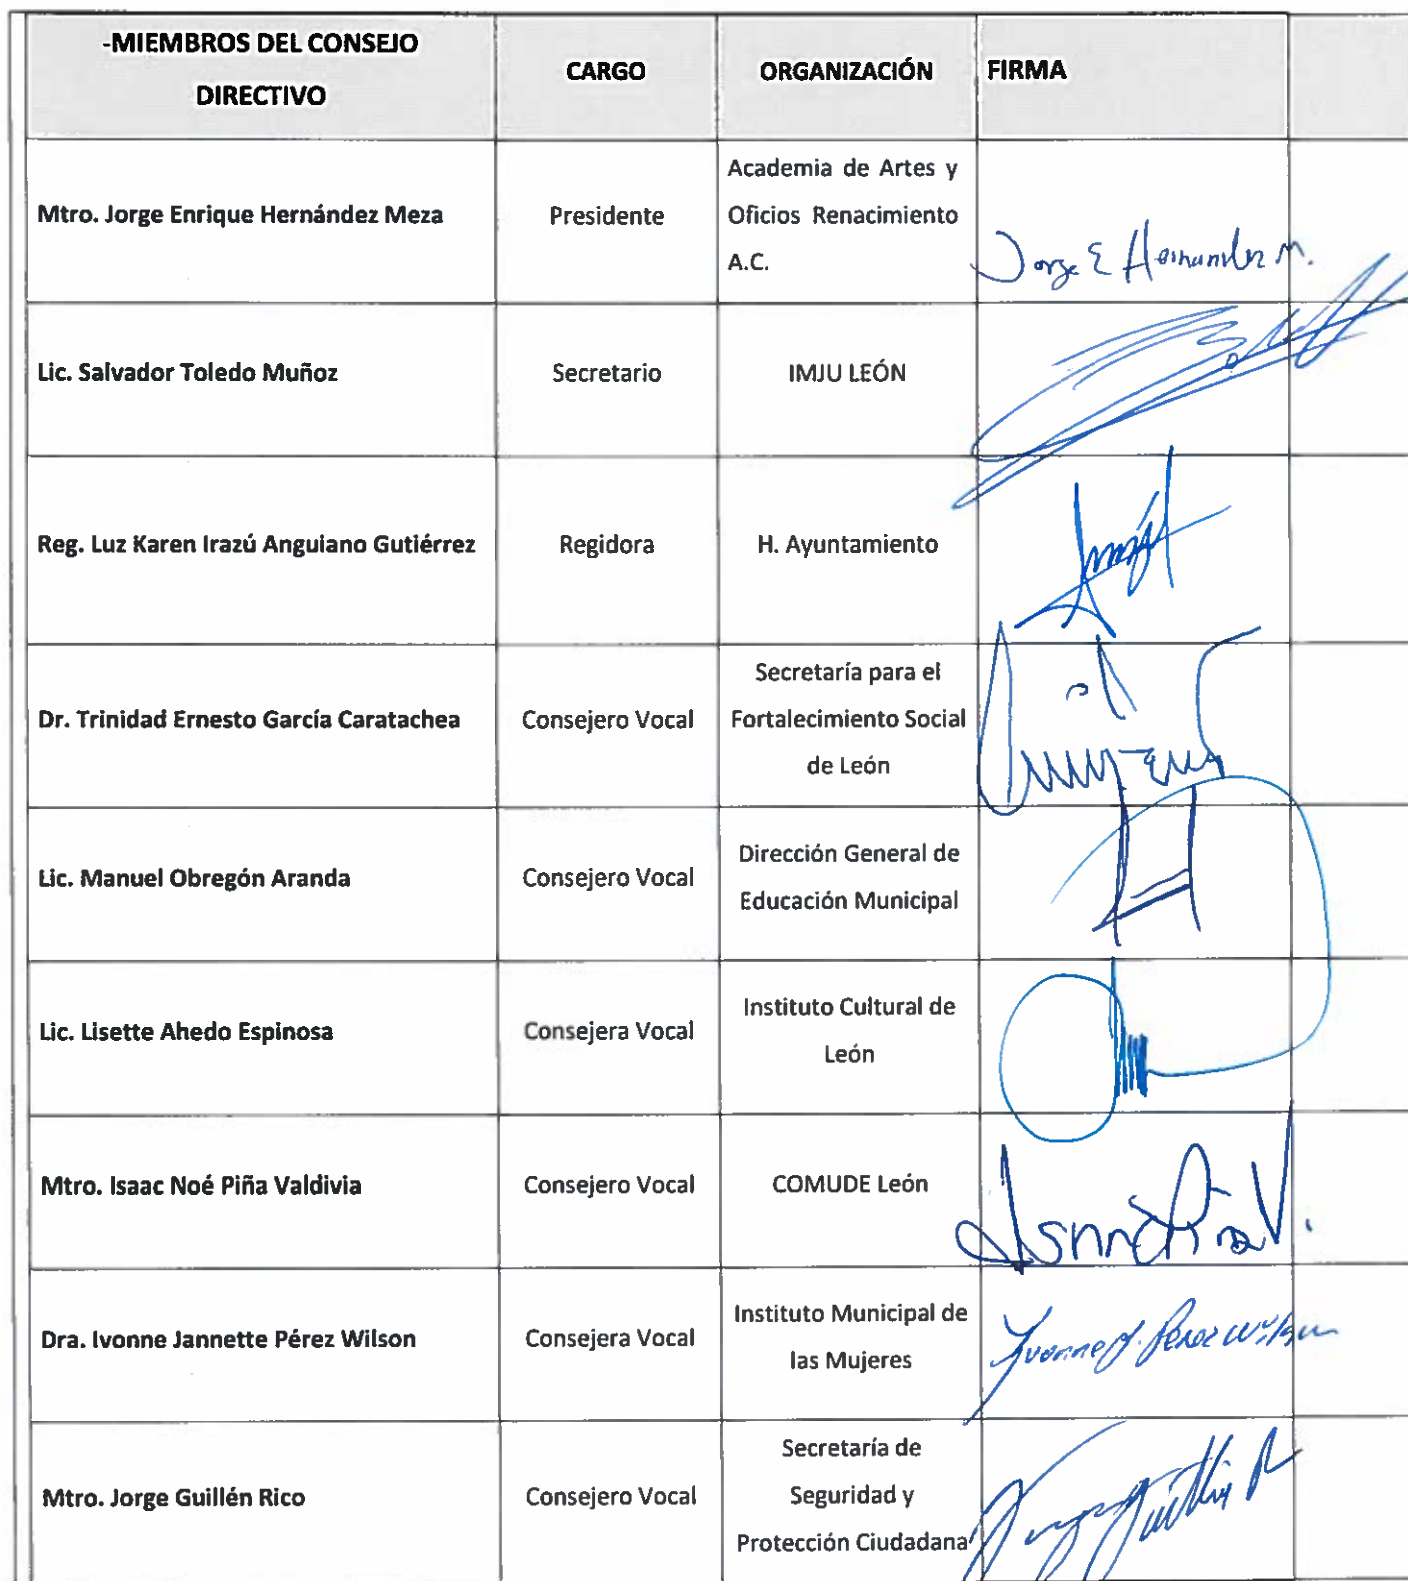 -MIEMBROS DEL CONSEJO
DIRECTIVO
CARGO
ORGANIZACIÓN
FIRMA
Mtro. Jorge Enrique Hernández Meza
Presidente
Academia de Artes y
Oficios Renacimiento
A.C.
Jorge E Hernandez M.
Lic. Salvador Toledo Muñoz
Secretario
IMJU LEÓN
Reg. Luz Karen Irazú Anguiano Gutiérrez
Regidora
H. Ayuntamiento
Dr. Trinidad Ernesto García Caratachea
Consejero Vocal
Secretaría para el
Fortalecimiento Social
de León
Lic. Manuel Obregón Aranda
Consejero Vocal
Dirección General de
Educación Municipal
Lic. Lisette Ahedo Espinosa
Consejera Vocal
Instituto Cultural de
León
Mtro. Isaac Noé Piña Valdivia
Consejero Vocal
COMUDE León
Dra. Ivonne Jannette Pérez Wilson
Consejera Vocal
Instituto Municipal de
las Mujeres
Ivonne J. Pérez Wilson
Mtro. Jorge Guillén Rico
Consejero Vocal
Secretaría de
Seguridad y
Protección Ciudadana
Jorge Guillén R